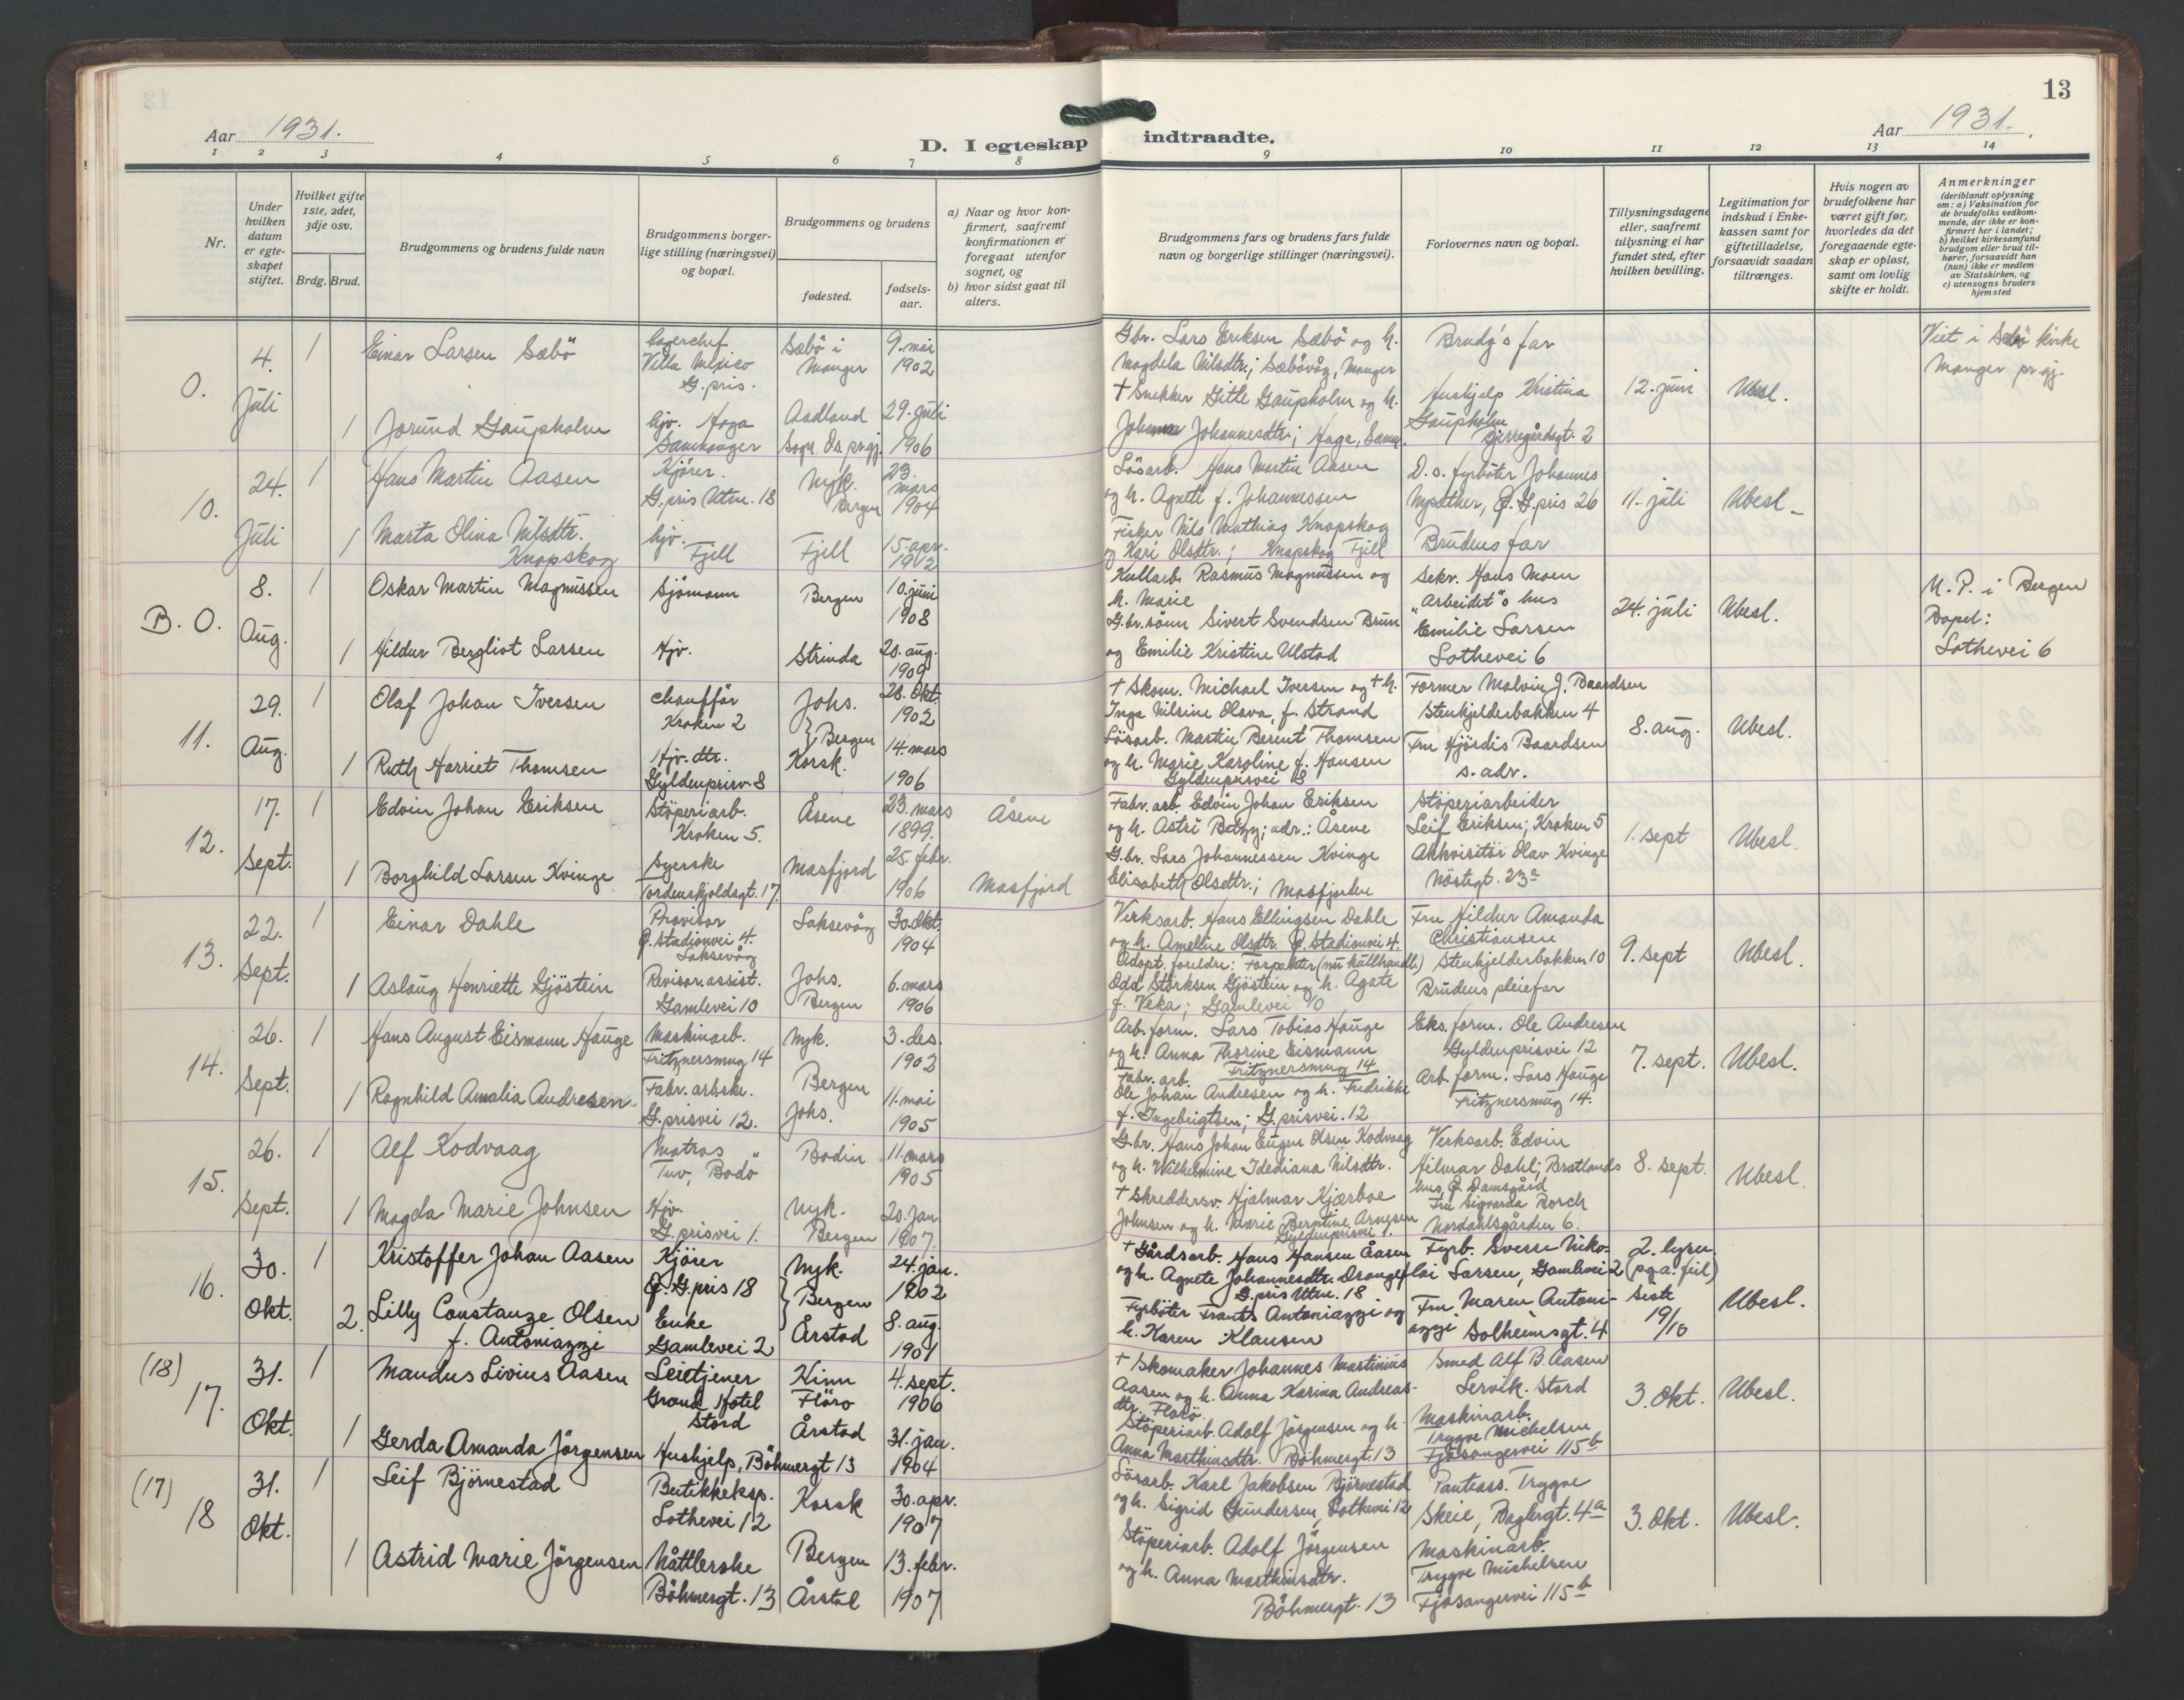 13
Aar 1931.
D. I egteskap
indtraadte.
Aar 1931.
1 2 3 4 5 6 7 8 9 10 11 12 13 14
Nr.
Under hvilken datum er egteskapet stiftet.
Hvilket gifte 1ste, 2det, 3dje osv.
Brdg. Brud.
Brudgommens og brudens fulde navn
Brudgommens borgerlige stilling (næringsvei) og bopæl.
Brudgommens og brudens
fødested.
fødselsaar.
a) Naar og hvor konfirmert, saafremt konfirmationen er foregaat utenfor sognet, og
b) hvor sidst gaat til alters.
Brudgommens fars og brudens fars fulde navn og borgerlige stillinger (næringsvei).
Forlovernes navn og bopæl.
Tillysningsdagene eller, saafremt tillysning ei har fundet sted, efter hvilken bevilling.
Legitimation for indskud i Enkekassen samt for giftetilladelse, forsaavidt saadan tiltrænges.
Hvis nogen av brudefolkene har været gift før, hvorledes da det foregaaende egteskap er opløst, samt om lovlig skifte er holdt.
Anmerkninger
(deriblandt oplysning om: a) Vaksination for de brudefolks vedkommende, der ikke er konfirmert her i landet; b) hvilket kirkesamfund brudgom eller brud tilhører, forsaavidt han (hun) ikke er medlem av Statskirken, og c) utensogns bruders hjemsted
0.
4. Juli
1 Einar Larsen Sæbö
Lagerchef Villa Mexico G.pris.
Sæbö i Manger
9. mai 1902
Gbr. Lars Eriksen Sæbö og h. Magdela Nilsdtr.; Sæbövåg, Manger
Brudg's far
12. juni
Ubesl.
Viet i Sæbö kirke Manger pr.gj.
1 Jorund Gaupholm
hjv. Haga Samnanger
Aadland Sogn. Os pr.gj.
29. juli 1906
† Snekker Gitle Gaupholm og h. Johanna Johannesdtr.; Haga, Samn.
Hushjelp Kristina Gaupholm Gjerregårdsgt. 2
10.
24. Juli
1 Hans Martin Aasen
Kjörer. G.pris Utm. 18
Nyk. Bergen
23. mars 1904
Lösarb. Hans Martin Aasen og h. Agnete f. Johannessen
D.s. fyrböter Johannes Nysæther, Ø. G.pris 26
11. juli
Ubesl.
1 Marta Olina Nilsdtr. Knapskog
hjv. Fjell
Fjell
15. apr. 1912
Fisker Nils Mathias Knapskog og Kari Olsdtr.; Knapskog Fjell
Brudens far
B. O.
8. Aug.
1 Oskar Martin Magnussen
Sjömann
Bergen
10. juni 1908
Kullarb. Rasmus Magnussen og h. Marie
Sekr. Hans Moen "Arbeidet"s hus
24. juli
Ubesl.
M. P. i Bergen Bopel: Lothevei 6
1 Hildur Bergliot Larsen
Hjv.
Strinda
20. aug. 1909
G.br.sönn Sivert Svendsen Brun og Emilie Kristine Ulstad
Emilie Larsen Lothevei 6
11.
29. Aug.
1 Olaf Johan Iversen
Chaufför Kroken 2
Johs. } Bergen
28. Okt. 1902
† Skom. Michael Iversen og † h. Inga Nilsine Olava, f. Strand
Former Malvin J. Baardsen Stenkjelderbakken 4
8. aug.
Ubesl.
1 Ruth Harriet Thomsen
Hjv. dtr. Gyldenprisv. 8
Korsk.
14. mars 1906
Lösarb. Martin Berent Thomsen og h. Marie Karoline f. Hansen Gyldenprisvei 8
Fru Hjördis Baardsen s. adr.
12.
17. Sept.
1 Edvin Johan Eriksen
Stöperiarb. Kroken 5.
Åsene
23. mars 1899.
Åsene
Fabr.arb Edvin Johan Eriksen og h. Astri Betzy; adr.: Åsene
Stöperiarbeider Leif Eriksen; Kroken 5
1. sept
Ubesl.
1 Borghild Larsen Kvinge
Syerske Tordenskjoldsgt. 17
Masfjord
25. febr. 1906
Masfjord
G.br. Lars Johannessen Kvinge Elisabeth Olsdtr.; Masfjorden
Akkvisitör Olav Kvinge Nöstegt. 23a
13.
22. Sept.
1 Einar Dahle
Provisor Ø. Stadionvei 4. Laksevåg
Laksevåg
30. Okt. 1904
Verksarb. Hans Ellingsen Dahle og h. Ameline Olsdtr. Ø. Stadionvei 4.
Fru Hildur Amanda Christiansen Stenkjelderbakken 10
9. sept
Ubesl.
1 Aslaug Henriette Gjöstein
Revisor. assist. Gamlevei 10
Johs. Bergen
6. mars 1906
Adopt. foreldre: Forpakter (nu kullhandl.) Odd Störksen Gjöstein og h. Agate f. Veka; Gamlevei 10
Brudens pleiefar
14.
26. Sept.
1 Hans August Eismann Hauge
Maskinarb. Fritznersmug 14
Nyk.
3. des. 1902
Arb. form. Lars Tobias Hauge og h. Anna Thorine Eismann Fritznersmug 14
Eks. form. Ole Andresen Gyldenprisvei 12
7. sept.
Ubesl.
1 Ragnhild Amalia Andresen
Fabr. arbske. G.prisvei 12.
Bergen Johs.
11. mai 1905
Fabr. arb. Ole Johan Andresen og h. Fredrikke f. Ingebrigtsen; G.prisvei. 12
Arb. form. Lars Hauge Fritznersmug 14.
15.
26. Sept.
1 Alf Kodvaag
Matros Tuv, Bodö
Bodin
11. mars 1905
G.br. Hans Johan Eugen Olsen Kodvaag og h. Wilhelmine Idediana Nilsdtr.
Verksarb. Edvin Hilmar Dahl; Bratlands hus, Ø. Damsgård
8. sept.
Ubesl.
1 Magda Marie Johnsen
Hjv. G.prisvei 1.
Nyk. Bergen
20. jan. 1907.
† Skreddersv. Hjalmar Kjærboe Johnsen og h. Marie Berntine Arnesen Gyldenprisvei 1.
Fru Sigvarda Borch Nordahlsgården 6.
16.
30. Okt.
1 Kristoffer Johan Aasen
Kjörer Ø. G.pris 18
Nyk. } Bergen
24. jan. 1902
† Gårdsarb. Hans Hansen Åsen og h. Agnete Johannesdtr. Drange G.pris Utm. 18
Fyrb. Sverre Nikolai Larsen, Gamlevei 2
2. lysn. (pg.a. feil) siste 19/10
Ubesl.
2. Lilly Constanze Olsen f. Antoniazzi
Enke Gamlevei 2
Årstad
8. aug. 1901
Fyrböter Frants Antoniazzi og h. Karen Klausen
Fru Maren Antoniazzi Solheimsgt. 4
(18) 17.
31. Okt.
1 Mandus Livius Aasen
Leietjener Grand Hotel Stord
Kinn Flöro
4. sept. 1906
† Skomaker Johannes Martinius Aasen og h. Anna Karina Andreasdtr. Florö.
Smed Alf B. Aasen Lervik. Stord
3. Okt.
Ubesl.
1 Gerda Amanda Jörgensen
Hushjelp, Böhmergt 13
Årstad
31. jan. 1904
Stöperiarb. Adolf Jörgensen og h. Anna Marthinsdtr. Böhmergt. 13
Maskinarb. Trygve Michelsen Fjösangervei 115b
(17) 18
31. Okt.
1 Leif Björnestad
Butikkeksp. Lothevei 12
Korsk
30. apr. 1907
Lösarb. Karl Jakobsen Björnestad og h. Sigrid Gundersen, Lothevei 12
Pantass. Trygve Skeie, Baglergt. 4a
3. Okt.
Ubesl.
1 Astrid Marie Jörgensen
Nåttlerske Böhmergt. 13
Bergen Årstad
13. febr. 1907
Stöperiarb. Adolf Jörgensen og h. Anna Marthinsdtr. Böhmergt. 13
Maskinarb. Trygve Michelsen Fjösangervei 115b